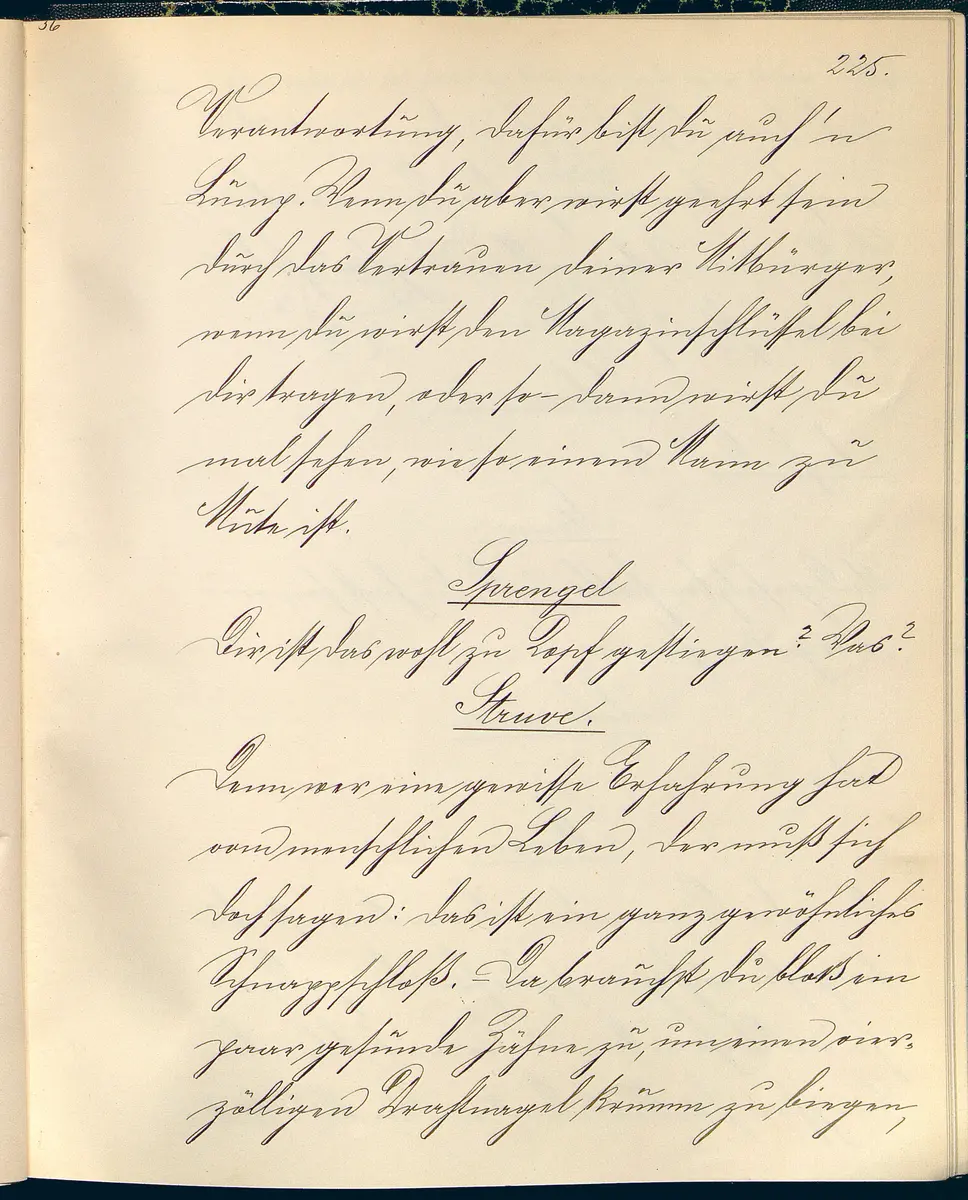 56
225.
Verantwortung, dafür bist du auch 'n
Lump. Wenn du aber wirst geehrt sein
durch das Vertrauen deiner Mitbürger,
wenn du wirst den Magazinschlüssel bei
dir tragen, oder so – dann wirst du
mal sehen, wie so einem Mann zu
Mute ist.
Sprengel
Dir ist das wohl zu Kopf gestiegen? Was?
Struve.
Denn wer eine gewisse Erfahrung hat
vom menschlichen Leben, der muß sich
doch sagen: das ist ein ganz gewöhnliches
Schnappschloß. – Da brauchst du bloß ein
paar gesunde Zähne zu, um einen vier-
zölligen Drahtnagel krumm zu biegen,